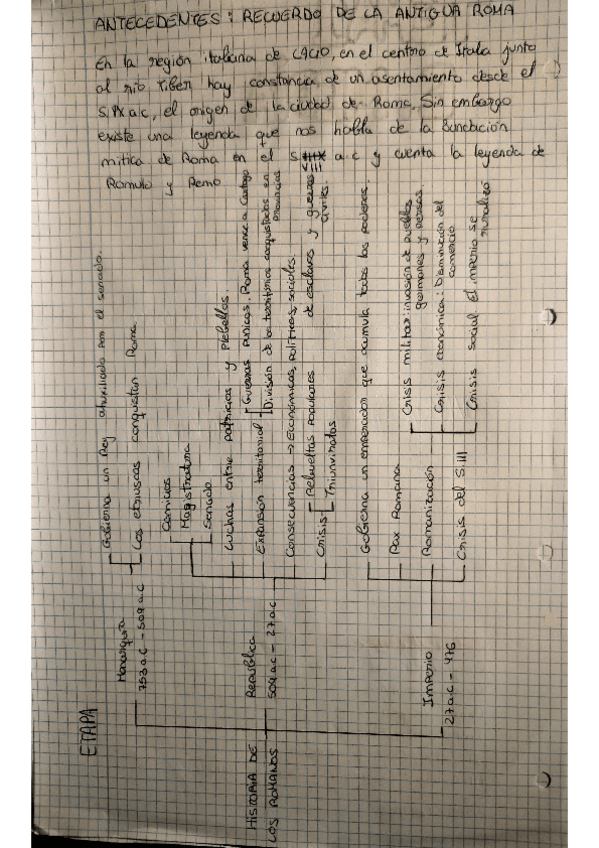 ANTECEDENTES: RECUERDO DE LA ANTIGUA ROMA
En la región italiana de LACIO, en el centro de Itala junto
al río Tiber hay constancia de un asentamiento desde el
S.IX a.c, el origen de la ciudad de Roma. Sin embargo
existe una leyenda que nos habla de la fundación
mítica de Roma en el S VIII a.c y cuenta la leyenda de
Romulo y Remo
ETAPA
HISTORIA DE
LOS ROMANOS
Monarquía
753 a.c - 509 a.c
Gobierna un Rey auxiliado por el senado.
Los etruscos conquistan Roma.
República
509 a.c - 27 a.c
Comicios
Magistratura
Senado
Luchas entre patricios y Plebellos.
Expansión territorial
Guerras púnicas. Roma vence a Cartago
División de los territorios conquistados en
Provincias
Consecuencias → Económicas, políticas, sociales.
Crisis
Rebueltas populares de esclavos y guerras
civiles.
Triunviratos
Imperio
27 a.c - 476
Gobierna un emperador que acumula todos los poderes.
Pax Romana
Romanización
Crisis del S.III
Crisis militar: invasión de pueblos
germanes y persas.
Crisis económica: Disminución del
comercio
Crisis social El imperio se
ruraliza